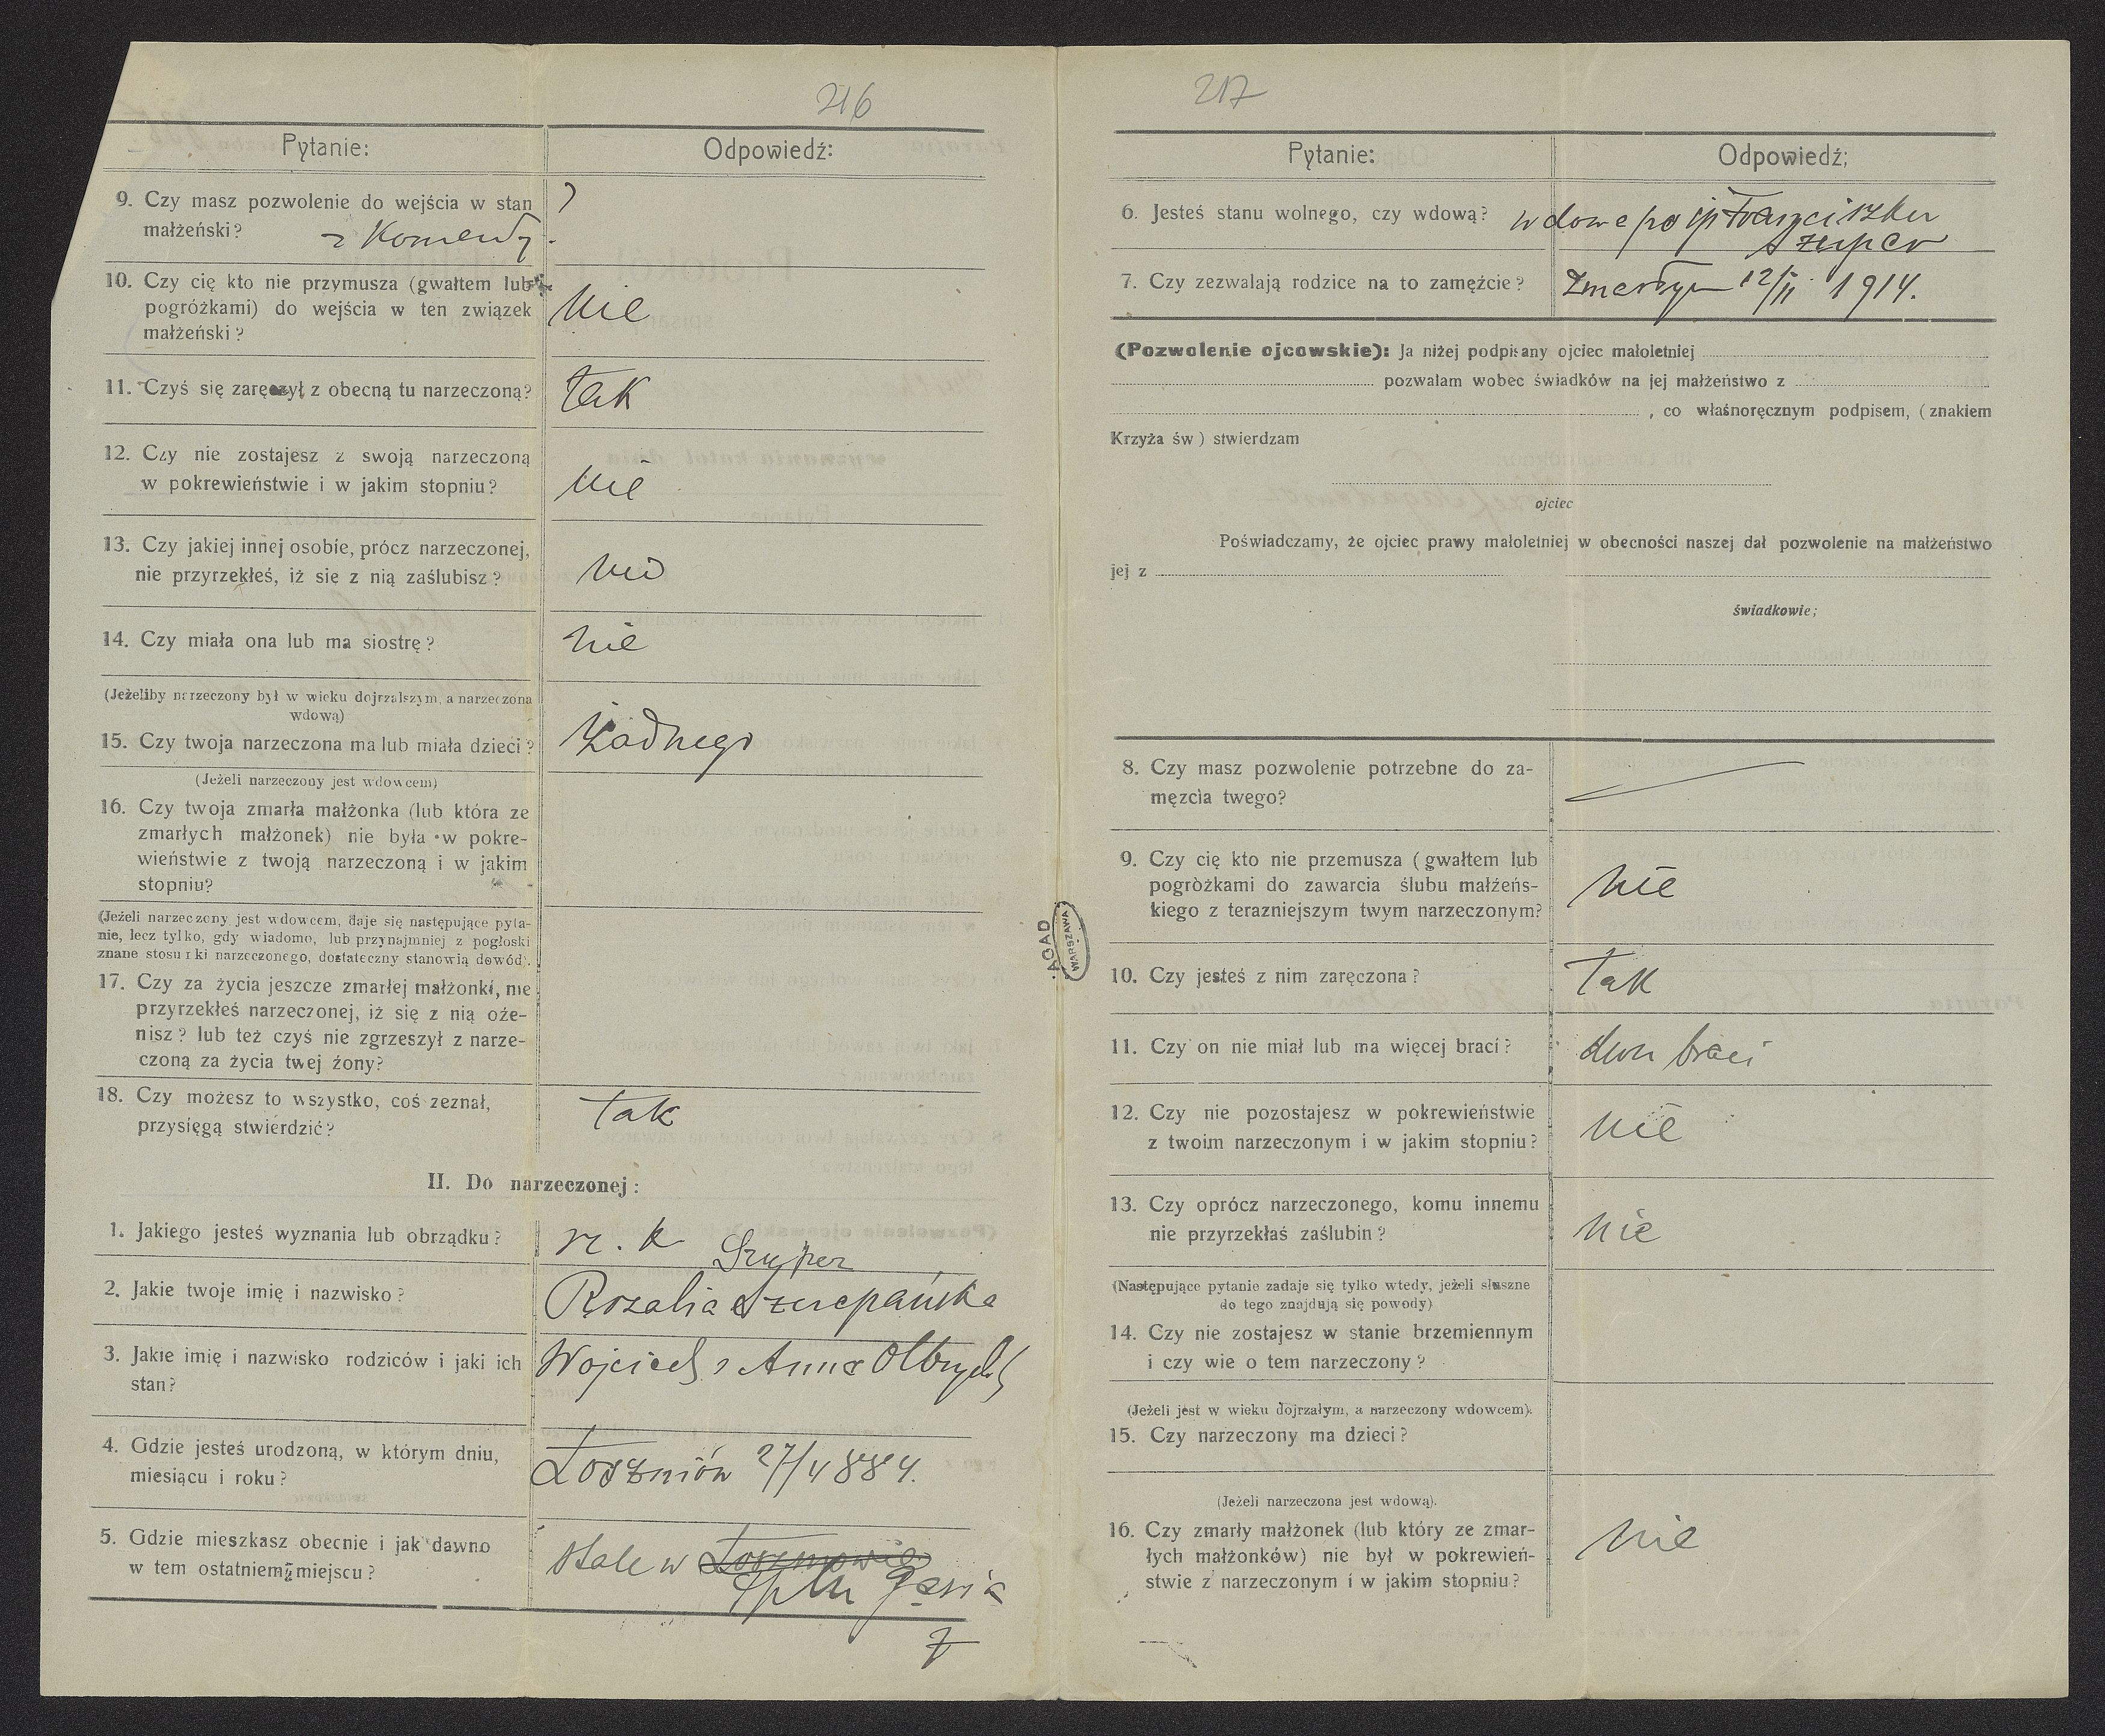 216
Pytanie:
Odpowiedź:
9. Czy masz pozwolenie do wejścia w stan
małżeński?
z Komendy.
?
10. Czy cię kto nie przymusza (gwałtem lub
pogróżkami) do wejścia w ten związek
małżeński?
nie
11. Czyś się zaręczył z obecną tu narzeczoną?
tak
12. Czy nie zostajesz z swoją narzeczoną
w pokrewieństwie i w jakim stopniu?
nie
13. Czy jakiej innej osobie, prócz narzeczonej,
nie przyrzekłeś, iż się z nią zaślubisz?
nie
14. Czy miała ona lub ma siostrę?
nie
(Jeżeliby narzeczony był w wieku dojrzalszym, a narzeczona
wdową)
15. Czy twoja narzeczona ma lub miała dzieci?
żadnego
(Jeżeli narzeczony jest wdowcem)
16. Czy twoja zmarła małżonka (lub która ze
zmarłych małżonek) nie była w pokre-
wieństwie z twoją narzeczoną i w jakim
stopniu?
(Jeżeli narzeczony jest wdowcem, daje się następujące pyta-
nie, lecz tylko, gdy wiadomo, lub przynajmniej z pogłoski
znane stosunki narzeczonego, dostateczny stanowią dowód).
17. Czy za życia jeszcze zmarłej małżonki, nie
przyrzekłeś narzeczonej, iż się z nią oże-
nisz? lub też czyś nie zgrzeszył z narze-
czoną za życia twej żony?
18. Czy możesz to wszystko, coś zeznał,
przysięgą stwierdzić?
tak
II. Do narzeczonej:
1. Jakiego jesteś wyznania lub obrządku?
rz. k
Szuper
2. Jakie twoje imię i nazwisko?
Rozalia Szczepańska
3. Jakie imię i nazwisko rodziców i jaki ich
stan?
Wojciech i Anna Olbrycht
4. Gdzie jesteś urodzoną, w którym dniu,
miesiącu i roku?
Łoszniów 27/4 884.
5. Gdzie mieszkasz obecnie i jak dawno
w tem ostatniem miejscu?
stale w Łoszniowie
217
Pytanie:
Odpowiedź;
6. Jesteś stanu wolnego, czy wdową?
wdowa po śp Franciszku
Szuper
7. Czy zezwalają rodzice na to zamęźcie?
Zmarłym 12/II 1914.
(Pozwolenie ojcowskie): Ja niżej podpisany ojciec małoletniej
pozwalam wobec świadków na jej małżeństwo z
, co właśnoręcznym podpisem, (znakiem
Krzyża św) stwierdzam
ojciec
Poświadczamy, że ojciec prawy małoletniej w obecności naszej dał pozwolenie na małżeństwo
jej z
świadkowie;
8. Czy masz pozwolenie potrzebne do za-
męzcia twego?
9. Czy cię kto nie przemusza (gwałtem lub
pogròżkami do zawarcia ślubu małżeńs-
kiego z terazniejszym twym narzeczonym?
nie
AGAD
WARSZAWA
10. Czy jesteś z nim zaręczona?
tak
11. Czy on nie miał lub ma więcej braci?
dwu braci
12. Czy nie pozostajesz w pokrewieństwie
z twoim narzeczonym i w jakim stopniu?
nie
13. Czy oprócz narzeczonego, komu innemu
nie przyrzekłaś zaślubin?
nie
(Następujące pytanie zadaje się tylko wtedy, jeżeli słuszne
do tego znajdują się powody)
14. Czy nie zostajesz w stanie brzemiennym
i czy wie o tem narzeczony?
(Jeżeli jest w wieku dojrzałym, a narzeczony wdowcem).
15. Czy narzeczony ma dzieci?
(Jeżeli narzeczona jest wdową).
16. Czy zmarły małżonek (lub który ze zmar-
łych małżonków) nie był w pokrewień-
stwie z narzeczonym i w jakim stopniu?
nie